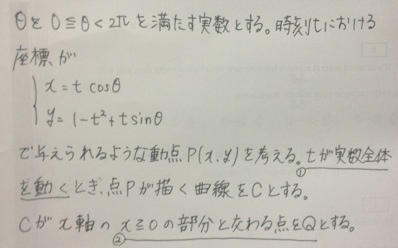 θを 0≦θ<2πを満たす実数とする。時刻tにおける
座標が
x=t cosθ
y=1-t²+t sinθ
で与えられるような動点P(x,y)を考える。tが実数全体
①
を動くとき、点Pが描く曲線をCとする。
Cがx軸のx≧0の部分と交わる点をQとする。
②